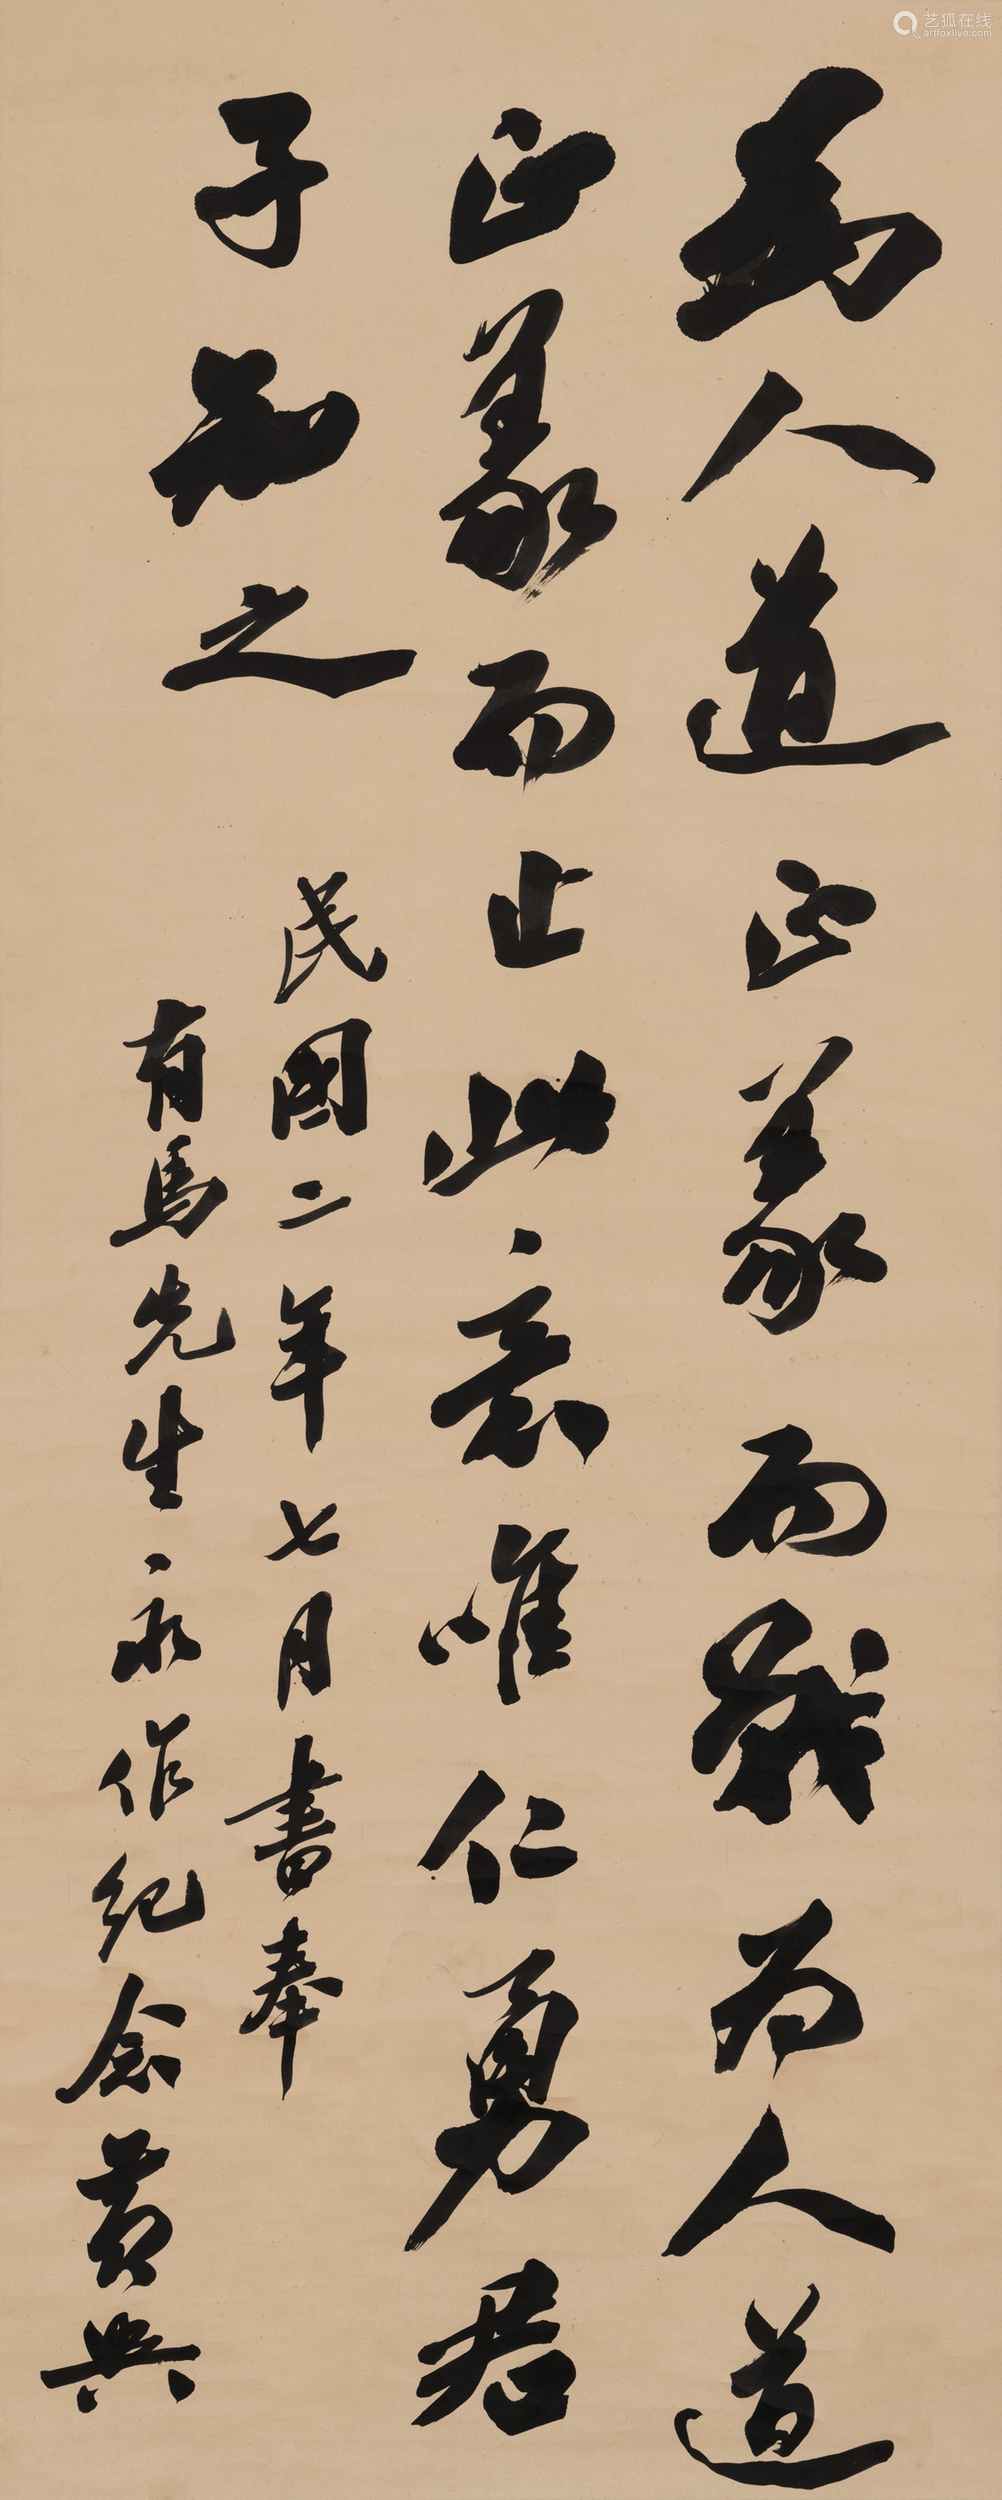 為人道正義而戰為人道
正義而止此意唯仁勇君
子知之
民國二年七月書奉
有馬先生永作紀念黄興
艺狐在线
artfoxlive.com